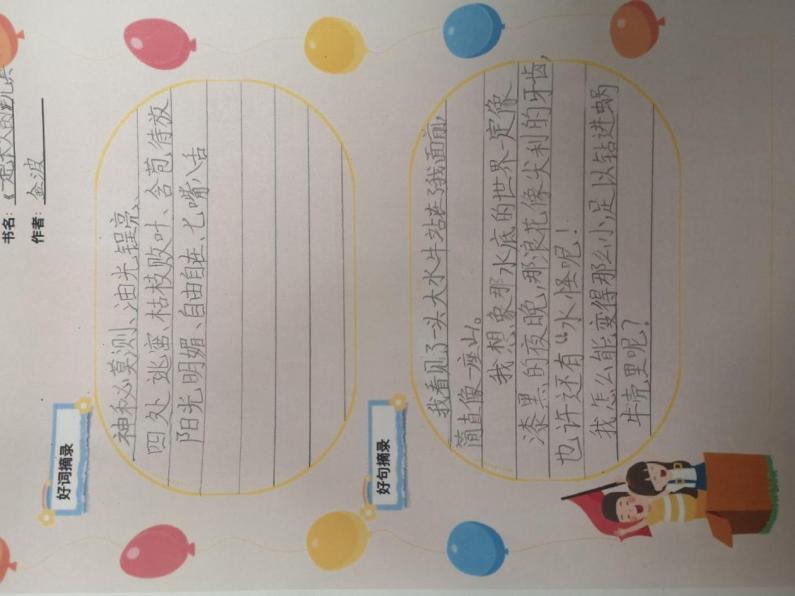 书名：《走木人的
作者：金波
好词摘录
神秘莫测、油光锃亮、
四处逃窜、枯枝败叶、含苞待放
阳光明媚、自由自在、七嘴八舌
好句摘录
我看见了一头大水牛站在我面前，
简直像一座山。
我想象那水底的世界一定像
漆黑的夜晚，那浪花像尖利的牙齿，
也许还有“水怪呢！
我怎么能变得那么小，足以钻进蜗
牛壳里呢？